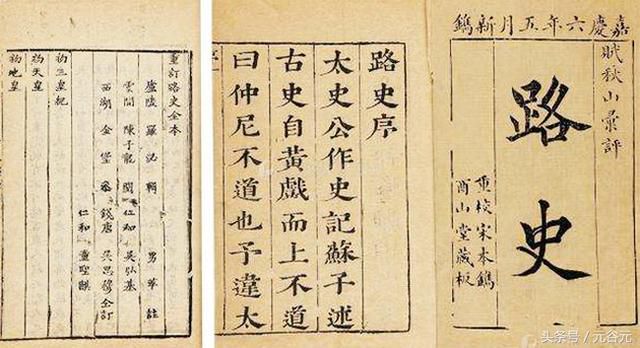 嘉慶六年五月新鐫
賦秋山彙評
路史
重校宋本鐫
酉山堂藏板
路史序
太史公作史記蘇子述
古史自黃戲而上不道
曰仲尼不道也予違太
重訂路史全本
廬陵 羅泌輯 男苹註
雲間 陳子龍閱 仁和 吳弘基
西湖 金堡參 錢唐 吳思穆仝訂
仁和
初三皇紀
初天皇
初地皇
头条号 / 元谷元